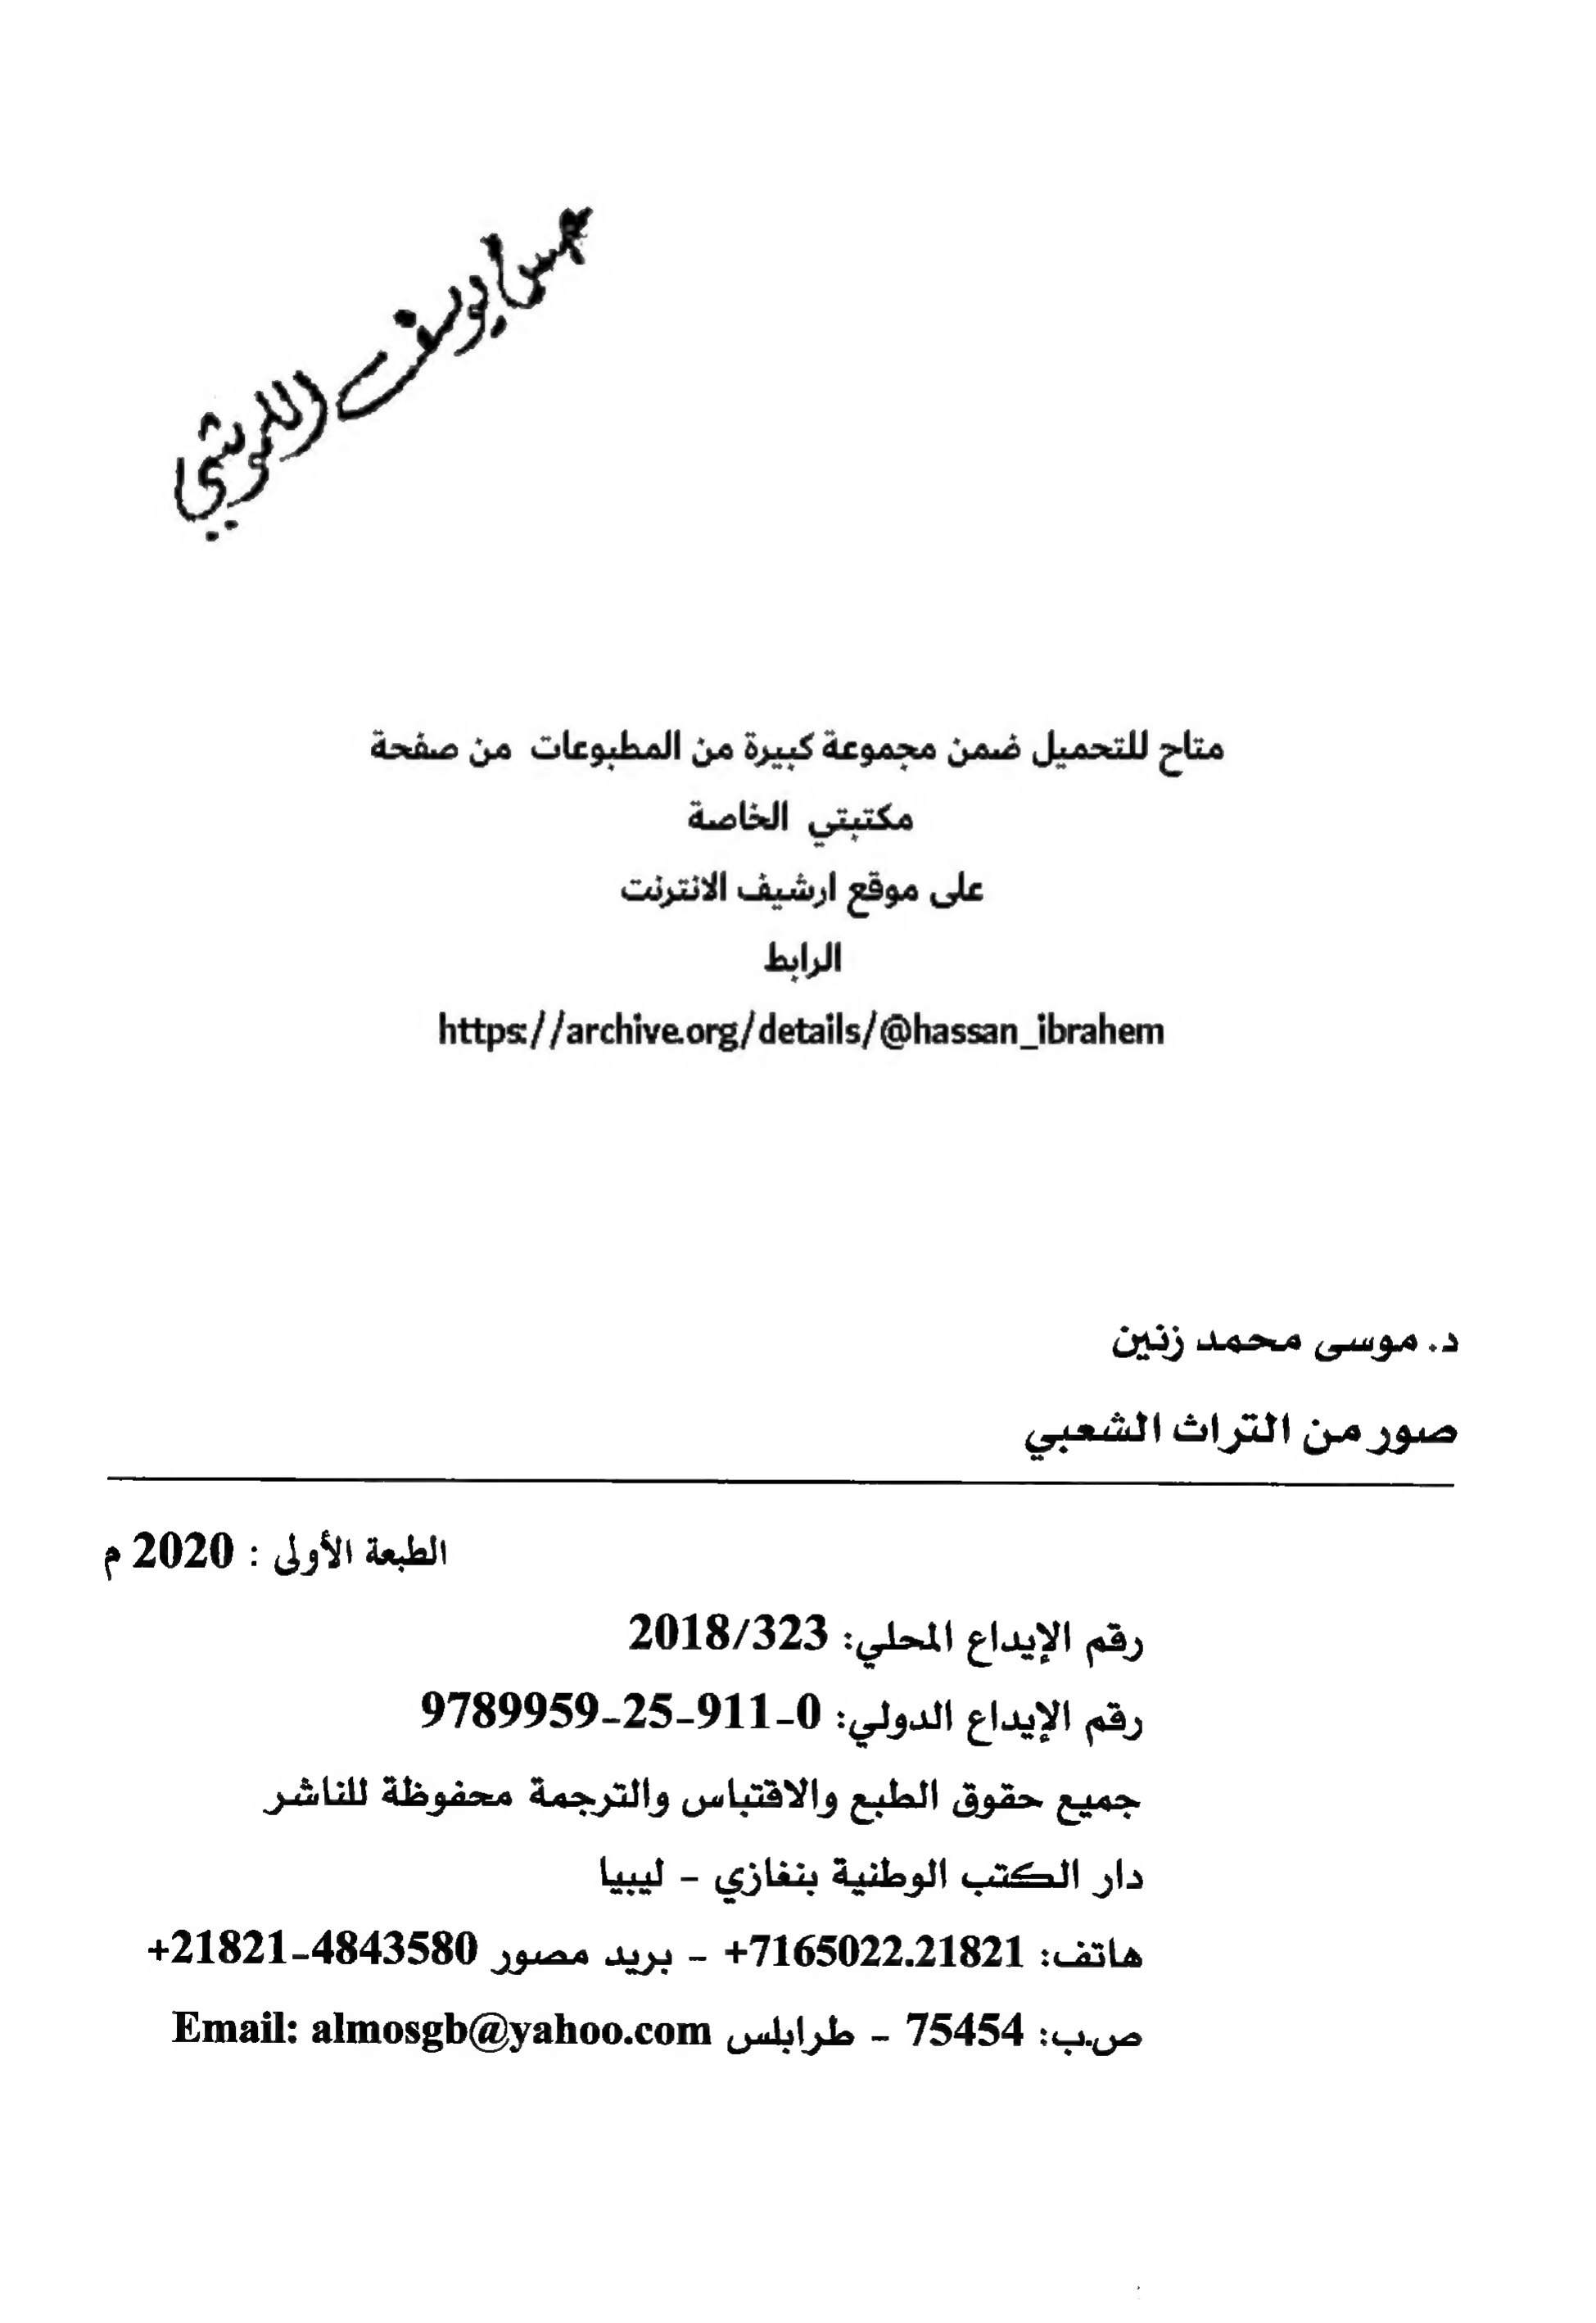 متاح للتحميل ضمن مجموعة كبيرة من المطبوعات من صفحة
مكتبتي الخاصة
على موقع ارشيف الانترنت
الرابط
https://archive.org/details/@hassan_ibrahem
د. موسى محمد زنين
صور من التراث الشعبي
الطبعة الأولى : 2020 م
رقم الإيداع المحلي: 2018/323
رقم الإيداع الدولي: 0-911-25-9789959
جميع حقوق الطبع والاقتباس والترجمة محفوظة للناشر
دار الكتب الوطنية بنغازي - ليبيا
هاتف: 7165022.21821+ - بريد مصور 4843580-21821+
ص.ب: 75454 - طرابلس Email: almosgb@yahoo.com